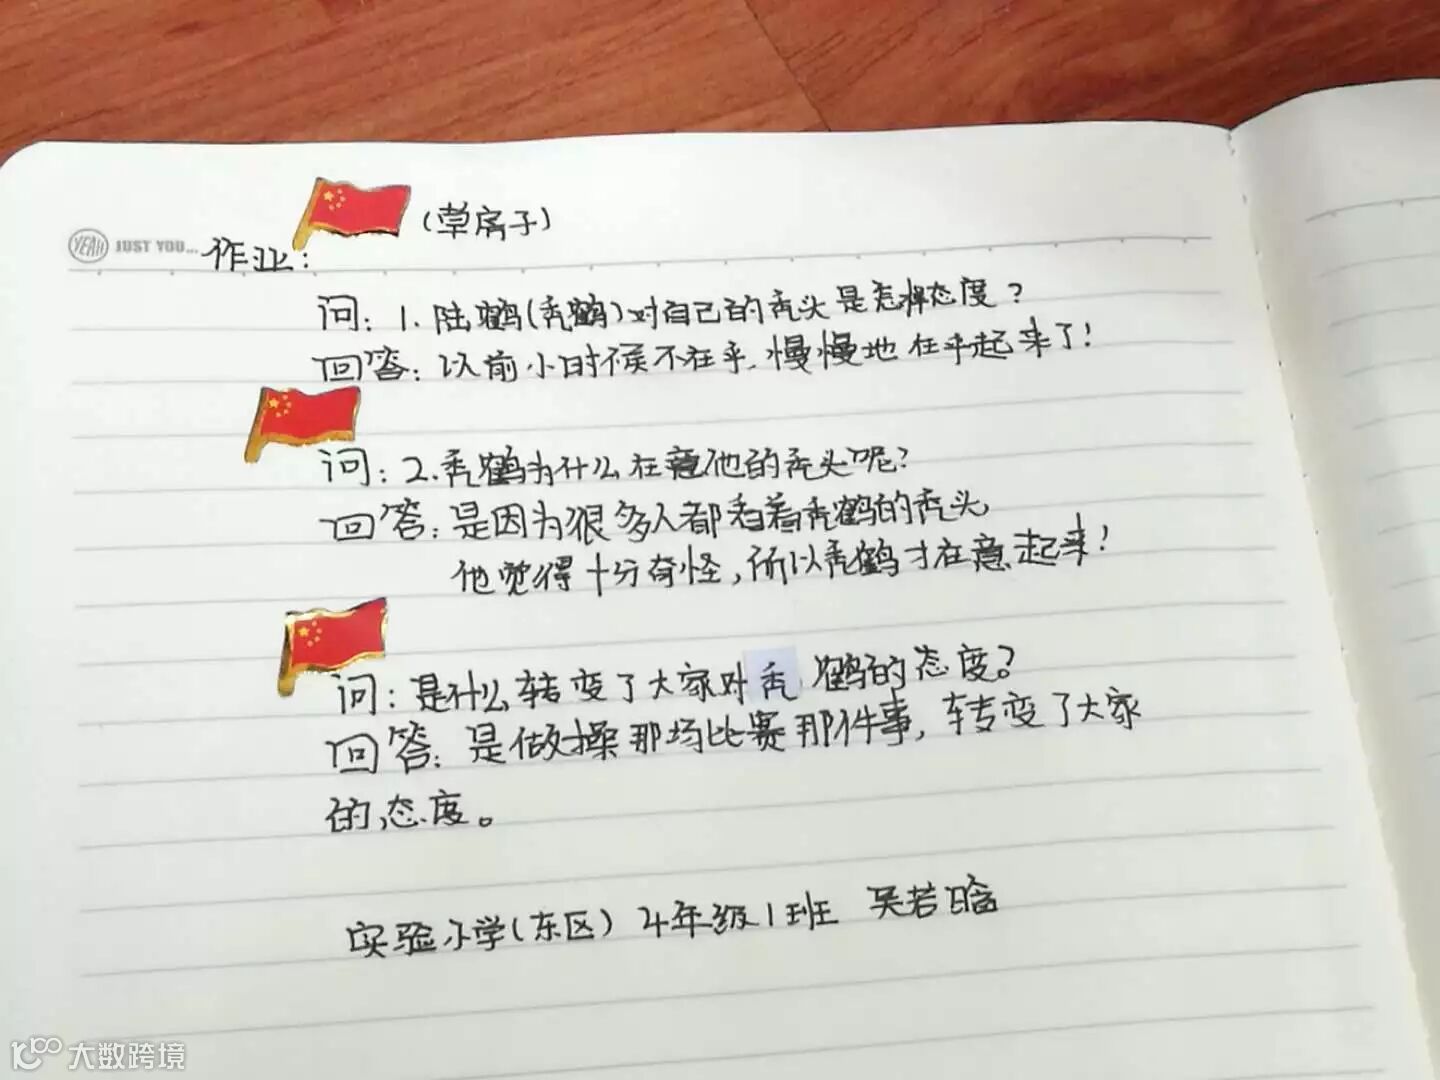 (草房子)
YEAH JUST YOU... 作业:
问: 1. 陆鹤(秃鹤)对自己的秃头是怎样态度?
回答: 以前小时候不在乎, 慢慢地在乎起来了!
问: 2. 秃鹤为什么在意他的秃头呢?
回答: 是因为很多人都看着秃鹤的秃头,
他觉得十分奇怪, 所以秃鹤才在意起来!
问: 是什么转变了大家对秃鹤的态度?
回答: 是做操那场比赛那件事, 转变了大家
的态度。
实验小学(东区) 4年级1班 吴若晗
大数跨境